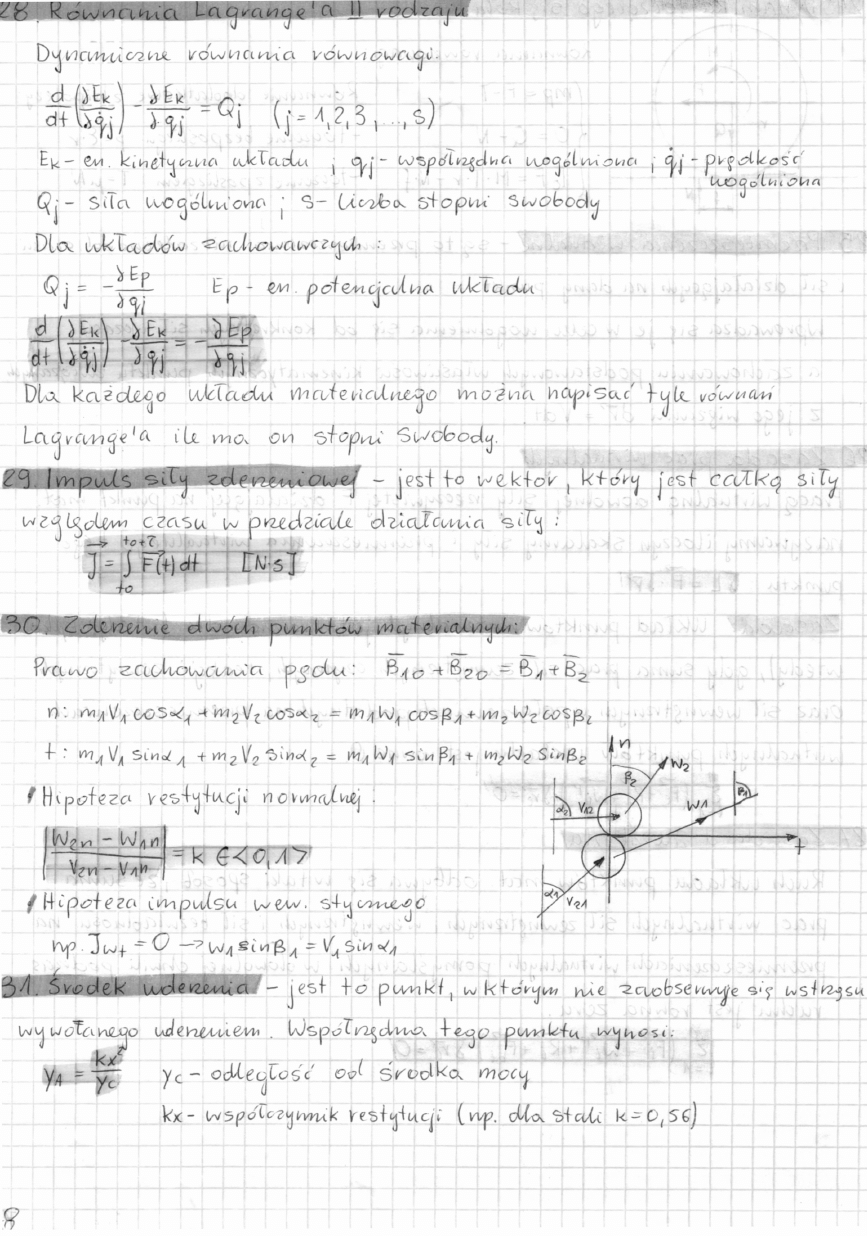 28. Równania Lagrange'a II rodzaju
Dynamiczne równania równowagi:
d/dt (∂Ek/∂q̇j) - ∂Ek/∂qj = Qj (j = 1,2,3,...,s)
Ek - en. kinetyczna układu ; qj - współrzędna uogólniona ; q̇j - prędkość
uogólniona
Qj - siła uogólniona ; s - liczba stopni swobody
Dla układów zachowawczych:
Qj = -∂Ep/∂qj Ep - en. potencjalna układu
d/dt (∂Ek/∂q̇j) - ∂Ek/∂qj = -∂Ep/∂qj
Dla każdego układu materialnego można napisać tyle równań
Lagrange'a ile ma on stopni swobody.
29. Impuls siły zderzeniowej - jest to wektor, który jest całką siły
względem czasu w przedziale działania siły:
J⃗ = ∫ t0 t0+τ F̅(t)dt [N·s]
30. Zderzenie dwóch punktów materialnych:
Prawo zachowania pędu: B̅10 + B̅20 = B̅1 + B̅2
n: m1V1 cosα1 + m2V2 cosα2 = m1W1 cosβ1 + m2W2 cosβ2
t: m1V1 sinα1 + m2V2 sinα2 = m1W1 sinβ1 + m2W2 sinβ2
Hipoteza restytucji normalnej.
|W2n - W1n / V2n - V1n| = k ∈ <0,1>
Hipoteza impulsu wew. stycznego
np. Jwt = 0 → w1 sinβ1 = V1 sinα1
n
β2
W2
α2
V12
W1
β1
t
α1
V21
31. Środek uderzenia - jest to punkt, w którym nie zaobserwuje się wstrząsu
wywołanego uderzeniem. Współrzędna tego punktu wynosi:
yA = kx²/yc yc - odległość od środka mocy
kx - współczynnik restytucji (np. dla stali k = 0,56)
8